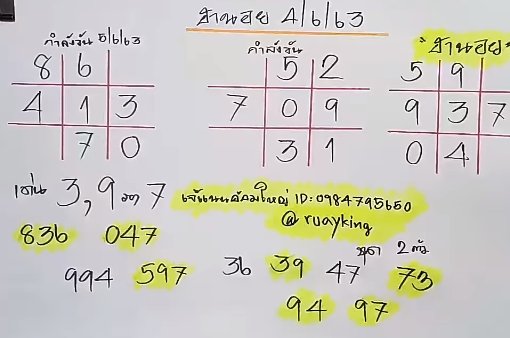 ฮานอย 4/6/63
กำลังวัน 5/6/63
กำลังวัน
"ฮานอย"
8 6
4 1 3
7 0
5 2
7 0 9
3 1
5 9
9 3 7
0 4
เด่น 3, 9 รอง 7
ID: 0984795650
@ruayking
836 047
994 597
ชุด 2 ตัว
36 39 47 73
94 97